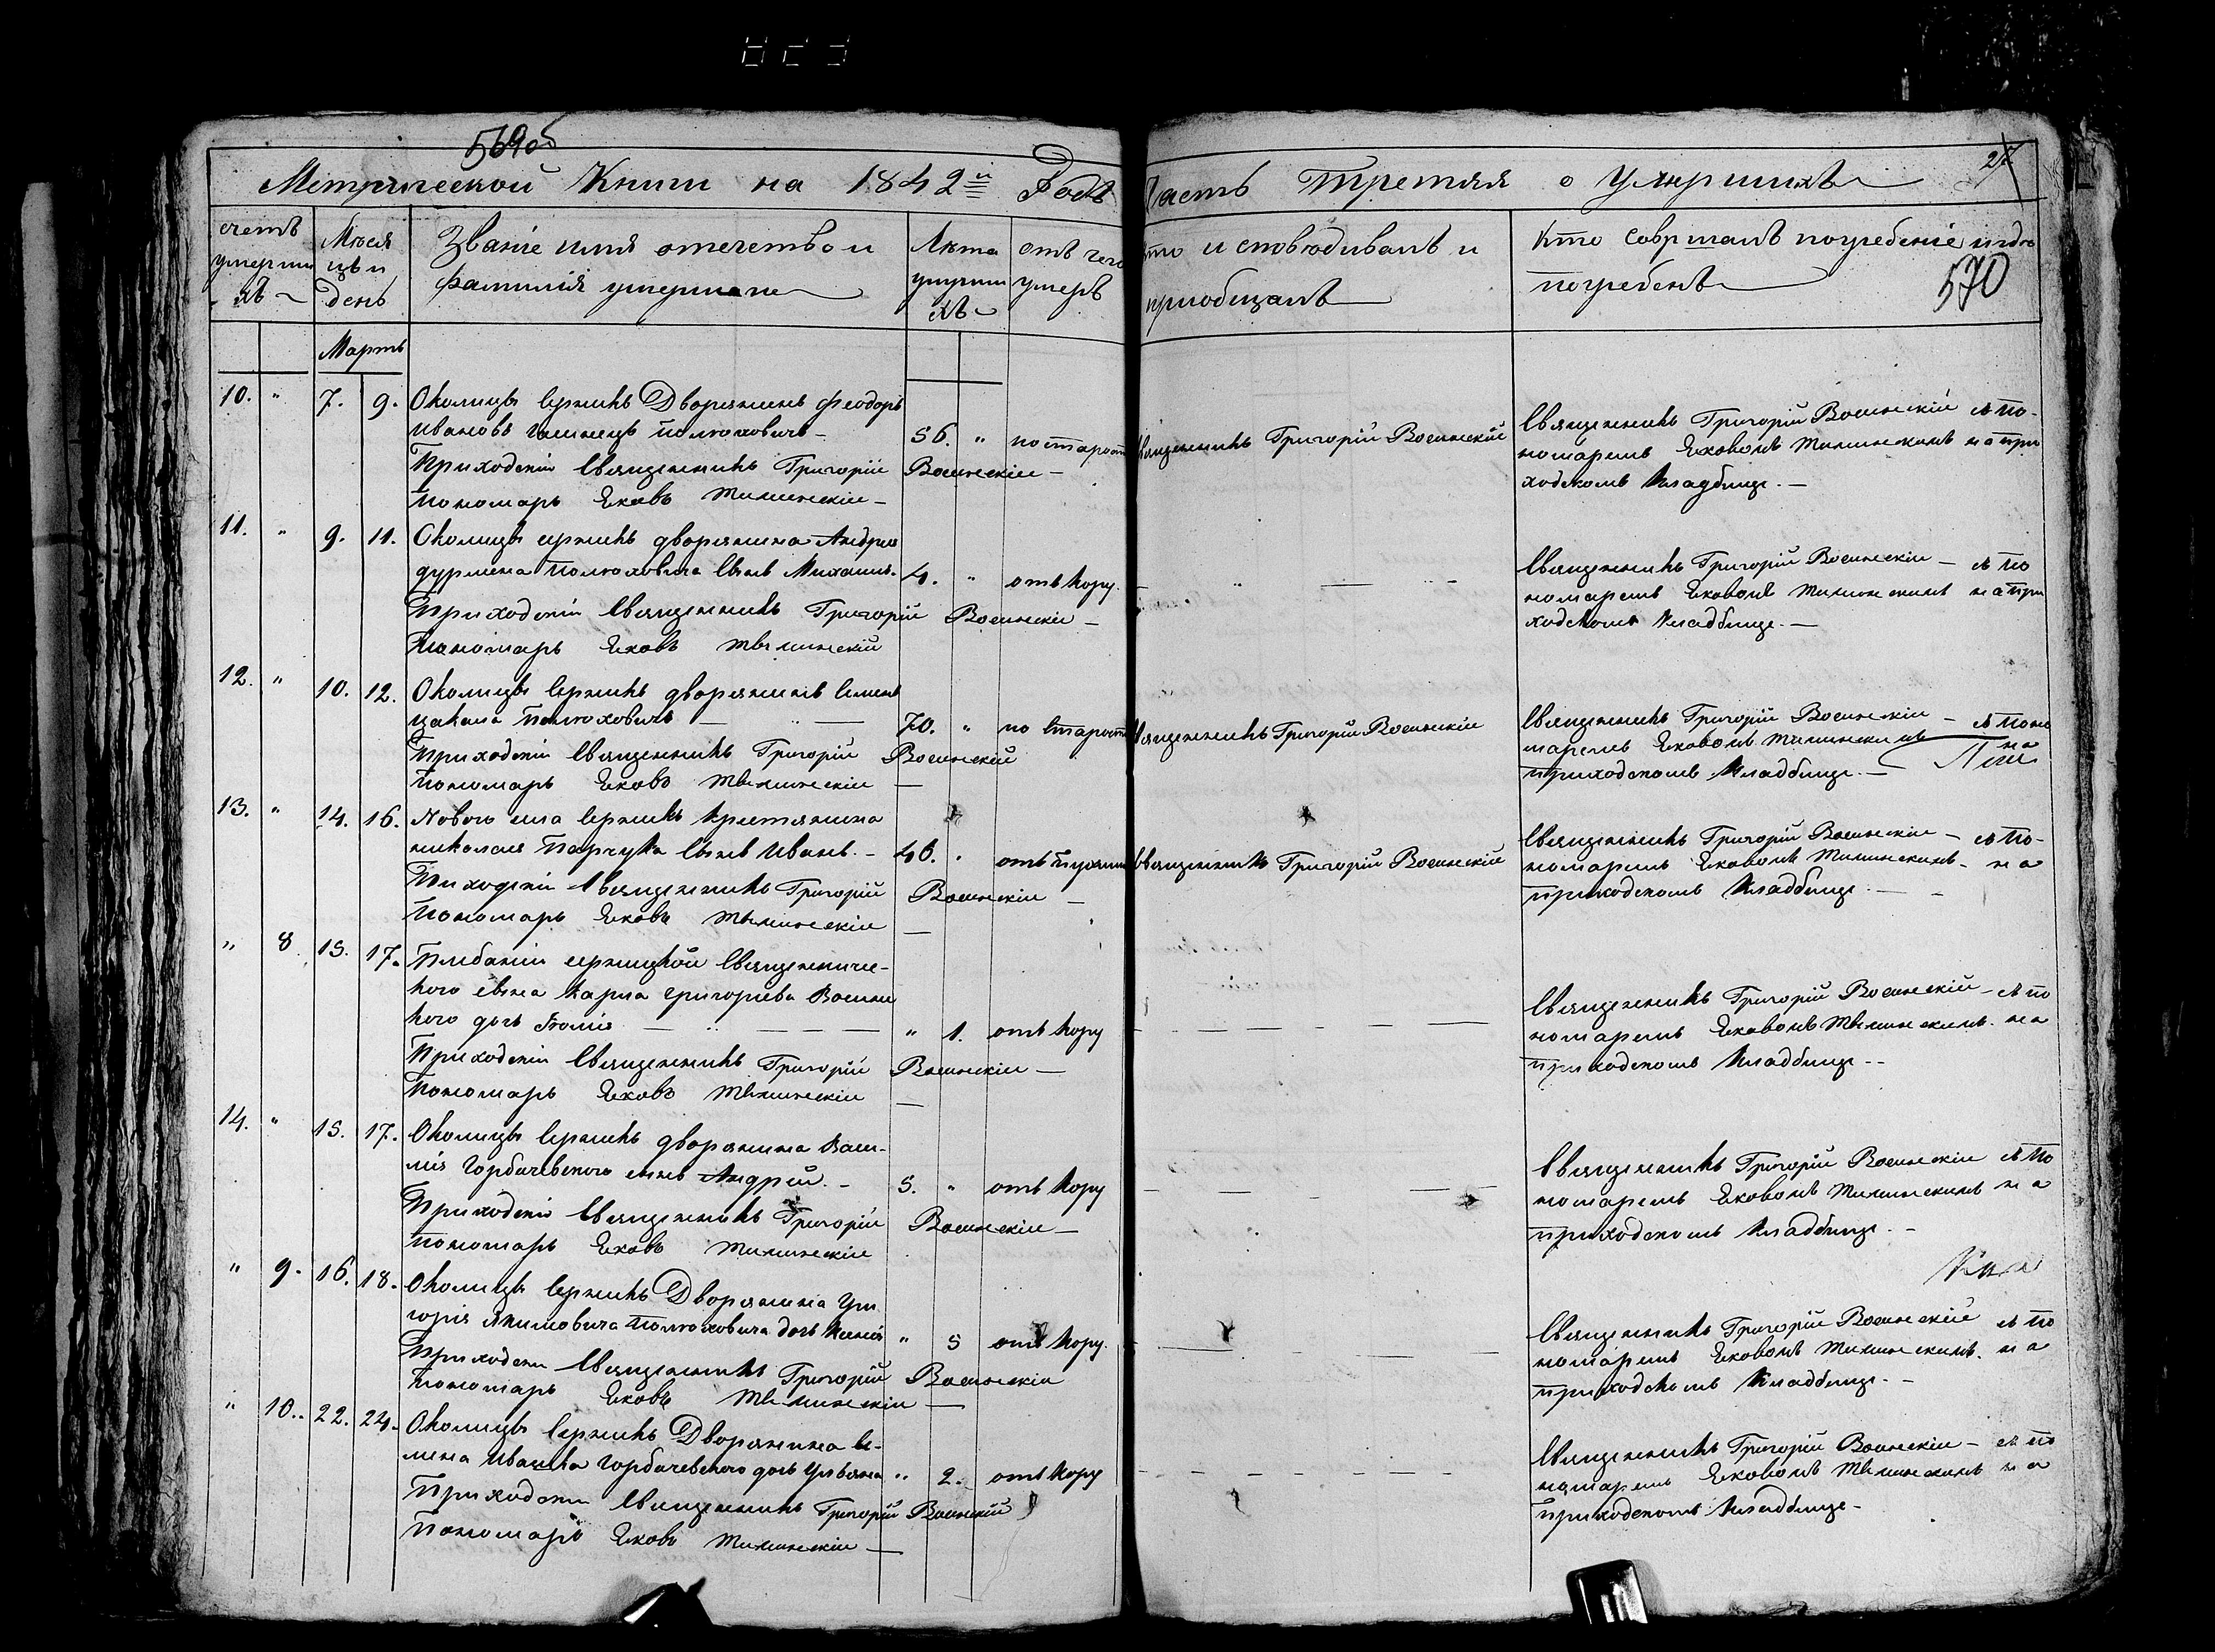 569об
Метрической Книги на 1842й Годъ Часть Третяя о Умершихъ
27
570
счетъ умерши хъ
Мѣся цъ и День
Званіе имя отечество и фамилія умершаго
Лѣта умерши хъ
отъ чего умеръ
кто исповѣдивалъ и приобщалъ
Кто совершалъ погребеніе и гдѣ погребенъ
Мартъ
10. " 7. 9. Околицы Серникъ Дворянинъ Феодоръ
Ивановъ Полюховичъ – 56. " по старост Священникъ Григорій Восинскій
Приходскій Священникъ Григорій Восинскіи –
Пономарь Ековъ Тиминскіи –
Священникъ Григорій Восинскій съ По-
номаремъ Ековомъ Тиминскимъ на при
ходскомъ Кладбище. –
11. " 9. 11. Околицы Серникъ дворянина Андрея
Полюховича Сынъ Михаилъ. 4. " отъ кору.
Приходскіи Священникъ Григорій Восинскіи –
Пономарь Ековъ Тиминскій
Священникъ Григорій Восинскіи – съ по
номаремъ Ековомъ Тиминскимъ на при
ходскомъ Кладбище. –
12. " 10. 12. Околицы Серникъ дворянинъ Семенъ
Полюховичъ – 70. " по Старости Священникъ Григорій Восинскіи
Приходскіи Священникъ Григорій Восинскій
Пономарь Ековъ Тиминскіи –
Священникъ Григорій Восинскіи – съ Поно
маремъ Ековомъ Тиминскимъ на
приходскомъ Кладбище. –
13. " 14. 16. Нового села Серникъ крестянина
николая Парчука Сынъ Иванъ. – 40. " Священникъ Григорій Восинскіи
Приходскіи Священникъ Григорій Восинскіи –
Пономарь Ековъ Тиминскіи –
Священникъ Григорій Восинскіи – съ По-
номаремъ Ековомъ Тиминскимъ – на
приходскомъ Кладбище. –
" 8. 15. 17. Плебаніи серницкой Священниче-
кого сына Карпа Григориева Восинс
кого дочь – " 1. отъ кору
Приходскіи Священникъ Григорій Восинскіи –
Пономарь Ековъ Тиминскіи –
Священникъ Григорій Восинскій – съ по
номаремъ Ековомъ Тиминскимъ. на
приходскомъ Кладбище --
14. " 15. 17. Околицы Серникъ дворянина Васи-
лія Горбачевского сынъ Андрей. – 5. " отъ кору
Приходскіи Священникъ Григорій Восинскіи –
Пономарь Ековъ Тиминскіи
Священникъ Григорій Восинскіи съ По
номаремъ Ековомъ Тиминскимъ на
приходскомъ Кладбище. –
" 9. 16. 18. Околицы Серникъ Дворянина Гри
горія Якимовича Полюховича дочь " 5 отъ кору.
Приходски Священникъ Григорій Восинскіи
Пономарь Ековъ Тиминскіи –
Священникъ Григорій Восинскій съ по
номаремъ Ековомъ Тиминскимъ. на
приходскомъ Кладбище. –
" 10. 22. 24. Околицы Серникъ Дворянина Се-
мена Ивашка Горбачевского дочь Улияна " 2. отъ кору
Приходски Священникъ Григорій Восинскій
Пономарь Ековъ Тиминскіи –
Священникъ Григорій Восинскіи – съ по
номаремъ Ековомъ Тиминскимъ на
Приходскомъ Кладбище –